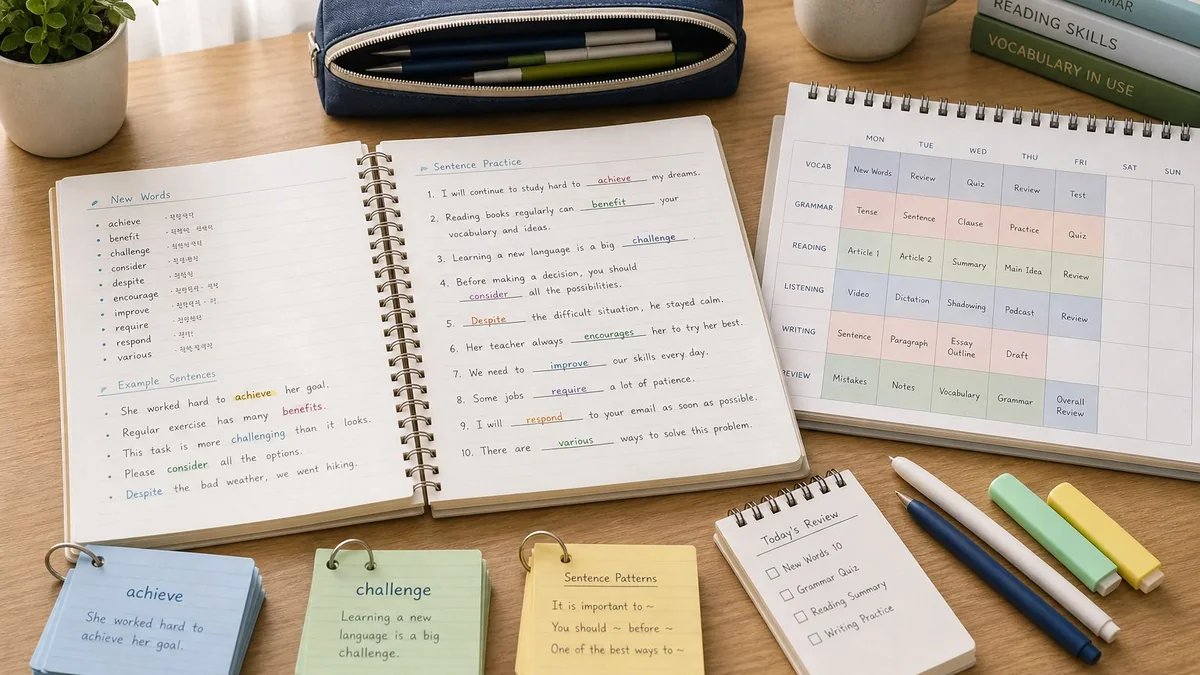 New Words
achieve
benefit
challenge
consider
despite
encourage
improve
require
respond
various
Example Sentences
She worked hard to achieve her goal.
Regular exercise has many benefits.
This task is more challenging than it looks.
Please consider all the options.
Despite the bad weather, we went hiking.
Sentence Practice
1. I will continue to study hard to achieve my dreams.
2. Reading books regularly can benefit your
vocabulary and ideas.
3. Learning a new language is a big challenge.
4. Before making a decision, you should
consider all the possibilities.
5. Despite the difficult situation, he stayed calm.
6. Her teacher always encourages her to try her best.
7. We need to improve our skills every day.
8. Some jobs require a lot of patience.
9. I will respond to your email as soon as possible.
10. There are various ways to solve this problem.
READING SKILLS
VOCABULARY IN USE
MON TUE WED THU FRI SAT SUN
VOCAB New Words Review Quiz Review Test
GRAMMAR Tense Sentence Clause Practice Quiz
READING Article 1 Article 2 Summary Main Idea Review
LISTENING Video Dictation Shadowing Podcast Review
WRITING Sentence Paragraph Essay Outline Draft
EVIEW Mistakes Notes Vocabulary Grammar Overall Review
achieve
She worked hard to
achieve her goal.
challenge
Learning a new
language is a big
challenge.
Sentence Patterns
It is important to ~
You should ~ before ~
One of the best ways to ~
Today's Review
New Words 10
Grammar Quiz
Reading Summary
Writing Practice